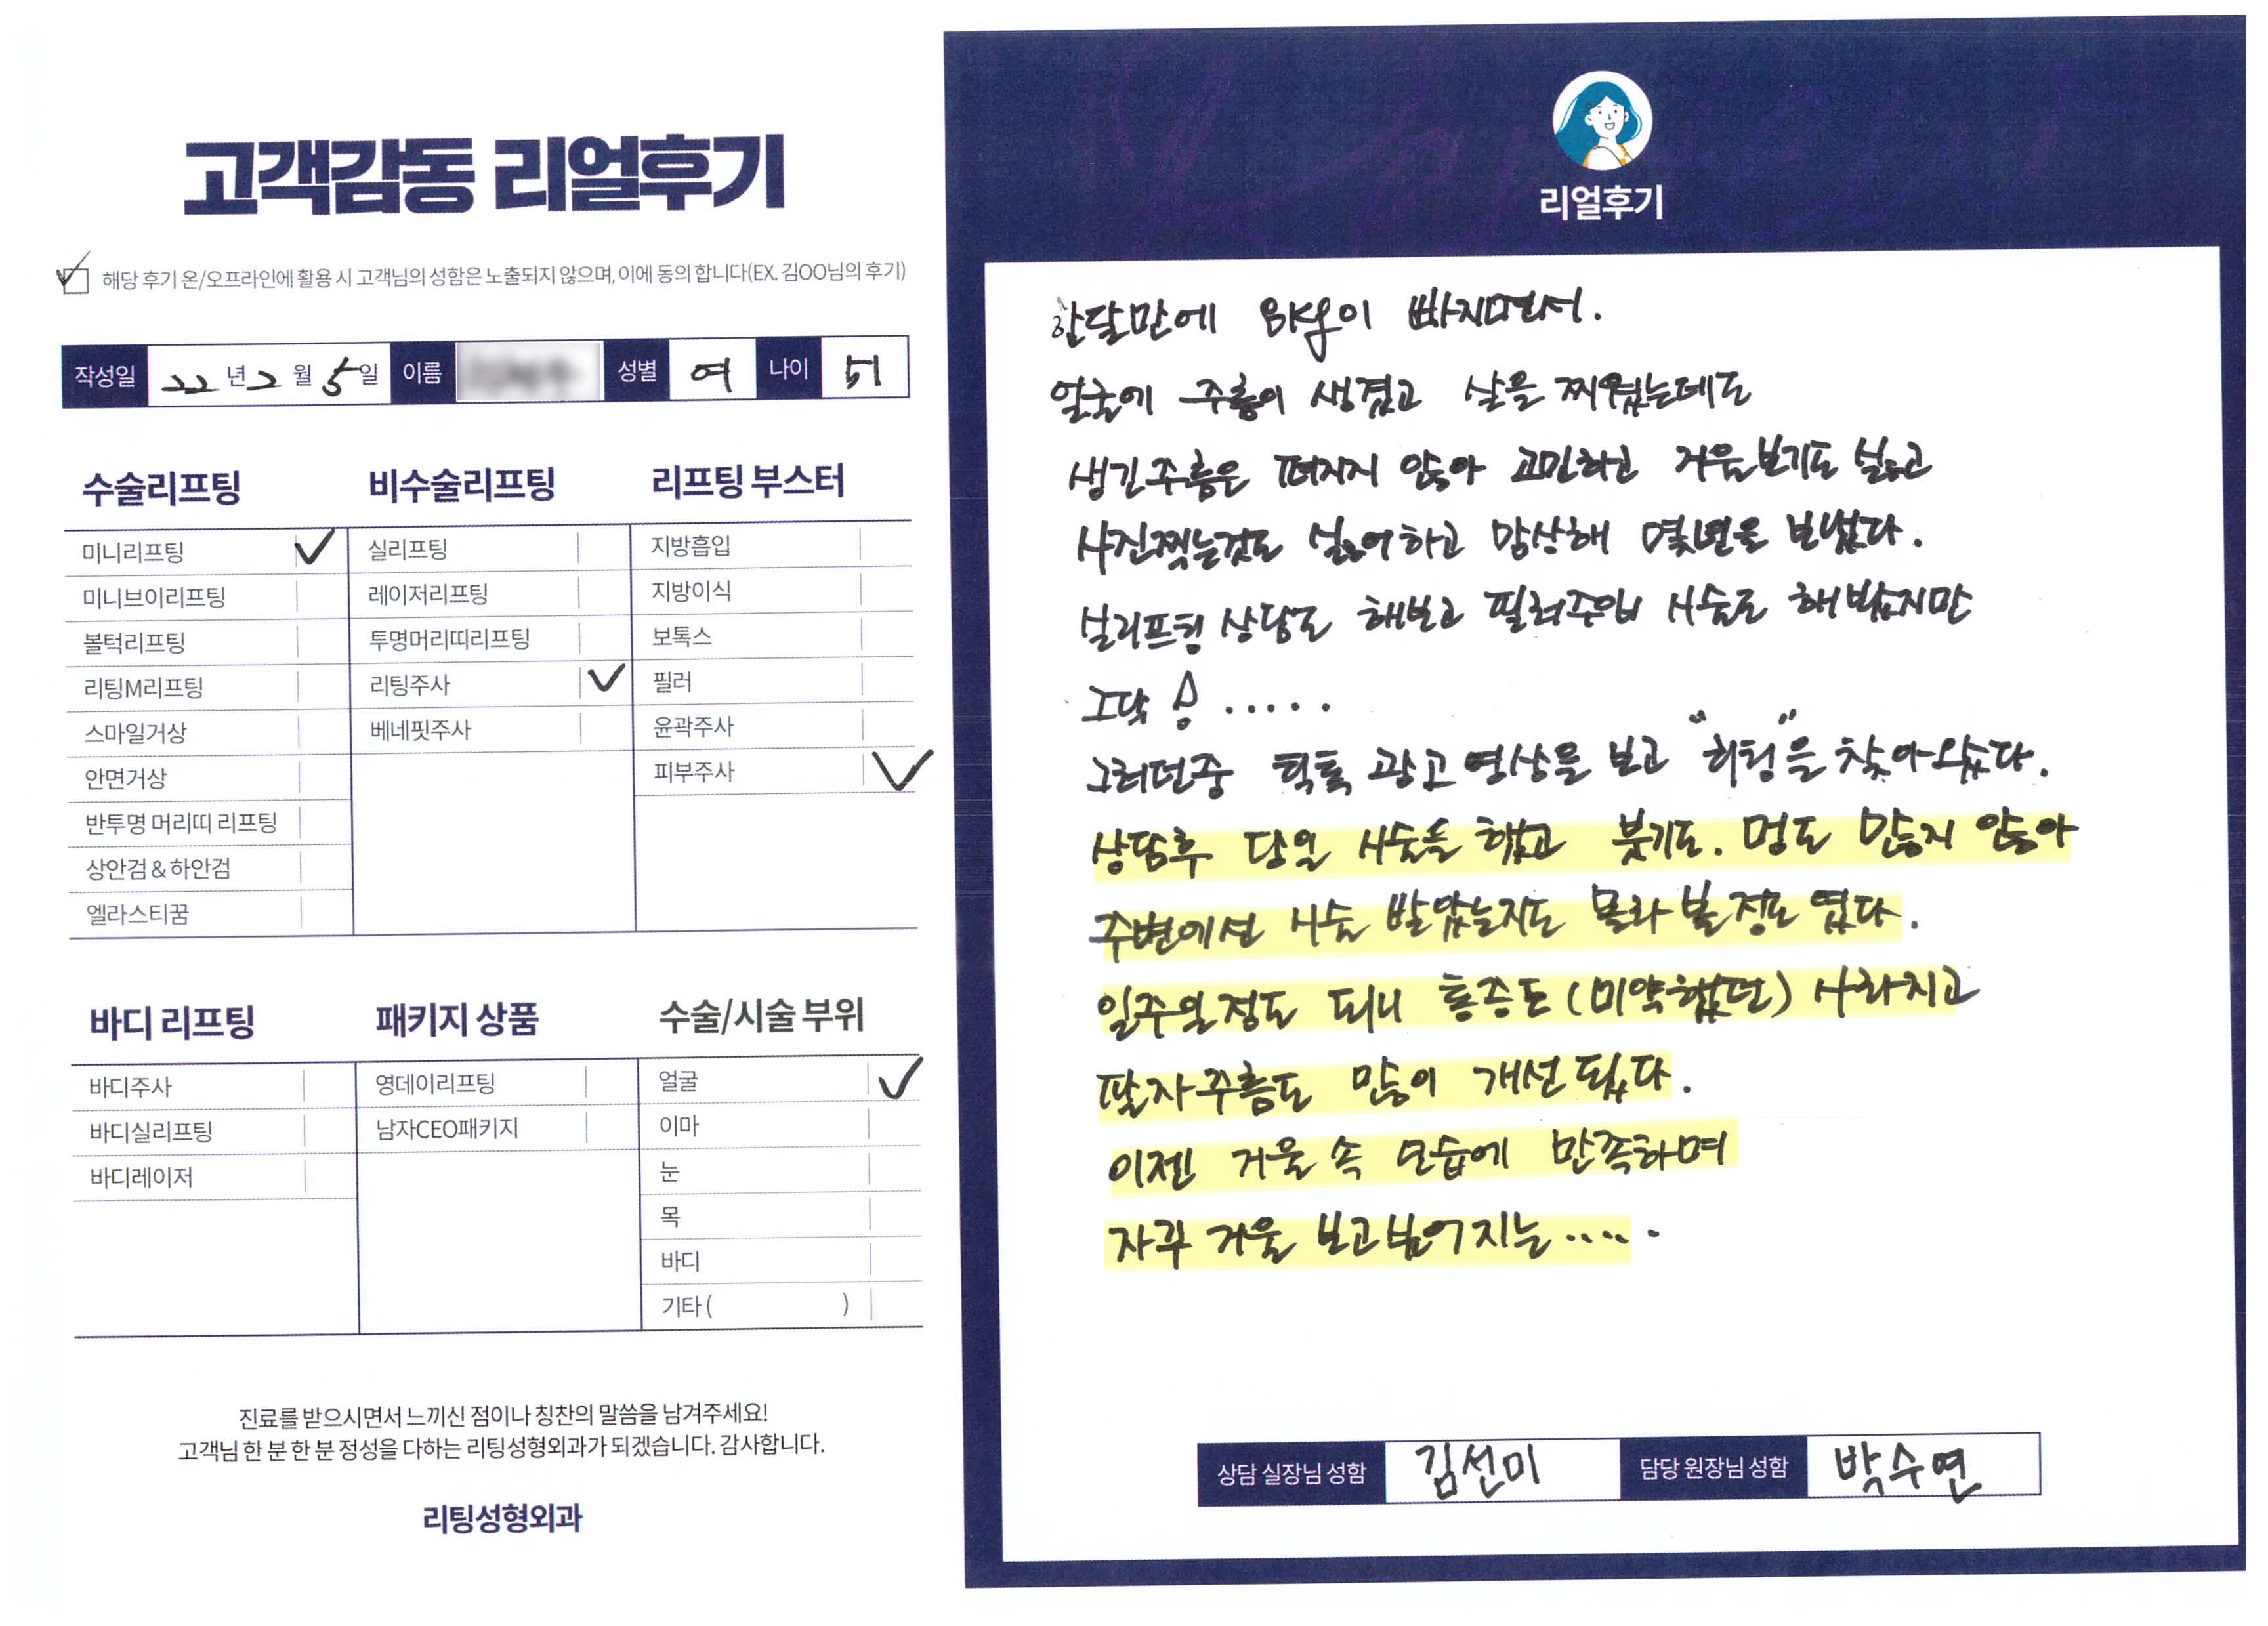 고객감동 리얼후기
해당 후기 온/오프라인에 활용 시 고객님의 성함은 노출되지 않으며, 이에 동의 합니다(EX. 김OO님의 후기)
작성일 22년 2월 5일 이름 성별 여 나이 51
수술리프팅
미니리프팅
미니브이리프팅
볼턱리프팅
리팅M리프팅
스마일거상
안면거상
반투명 머리띠 리프팅
상안검&하안검
엘라스티꿈
비수술리프팅
실리프팅
레이저리프팅
투명머리띠리프팅
리팅주사
베네핏주사
리프팅 부스터
지방흡입
지방이식
보톡스
필러
윤곽주사
피부주사
바디 리프팅
바디주사
바디실리프팅
바디레이저
패키지 상품
영데이리프팅
남자CEO패키지
수술/시술 부위
얼굴
이마
눈
목
바디
기타 ( )
진료를 받으시면서 느끼신 점이나 칭찬의 말씀을 남겨주세요!
고객님 한 분 한 분 정성을 다하는 리팅성형외과가 되겠습니다. 감사합니다.
리팅성형외과
리얼후기
한달만에 8kg이 빠지면서.
얼굴에 주름이 생겼고 살을 찌웠는데도
생긴주름은 펴지지 않아 고민하고 거울보기도 싫고
사진찍는것도 싫어하고 망상해 몇년을 보냈다.
실리프팅 상담도 해보고 필러주입 시술도 해봤지만
그닥 .....
그러던중 틱톡 광고 영상을 보고 "리팅"을 찾아왔다.
상담후 당일 시술을 했고 붓기도. 멍도 많지 않아
주변에선 시술 받았는지도 몰라 볼 정도 였다.
일주일정도 되니 통증도 (미약했던) 사라지고
팔자주름도 많이 개선 됬다.
이젠 거울 속 모습에 만족하며
자꾸 거울 보고싶어지는 .....
상담 실장님 성함 김선미 담당 원장님 성함 박수연